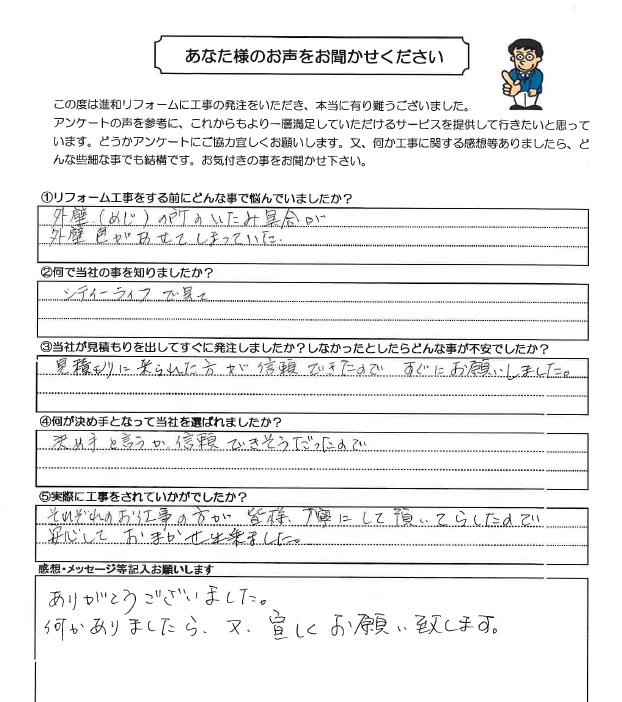 あなた様のお声をお聞かせください
この度は進和リフォームに工事の発注をいただき、本当に有り難うございました。
アンケートの声を参考に、これからもより一層満足していただけるサービスを提供して行きたいと思って
います。どうかアンケートにご協力宜しくお願いします。又、何か工事に関する感想等ありましたら、ど
んな些細な事でも結構です。お気付きの事をお聞かせ下さい。
①リフォーム工事をする前にどんな事で悩んでいましたか？
外壁（めじ）の所のいたみ具合が
外壁色があせてしまっていた.
②何で当社の事を知りましたか？
シティーライフで見て
③当社が見積もりを出してすぐに発注しましたか？しなかったとしたらどんな事が不安でしたか？
見積もりに来られた方が信頼できたので すぐにお願いしました。
④何が決め手となって当社を選ばれましたか？
決め手と言うか、信頼できそうだったので
⑤実際に工事をされていかがでしたか？
それぞれのお仕事の方が 皆様、丁寧にして頂いてらしたので
安心して おまかせ出来ました。
感想・メッセージ等記入お願いします
ありがとうございました。
何かありましたら、又、宜しくお願い致します。